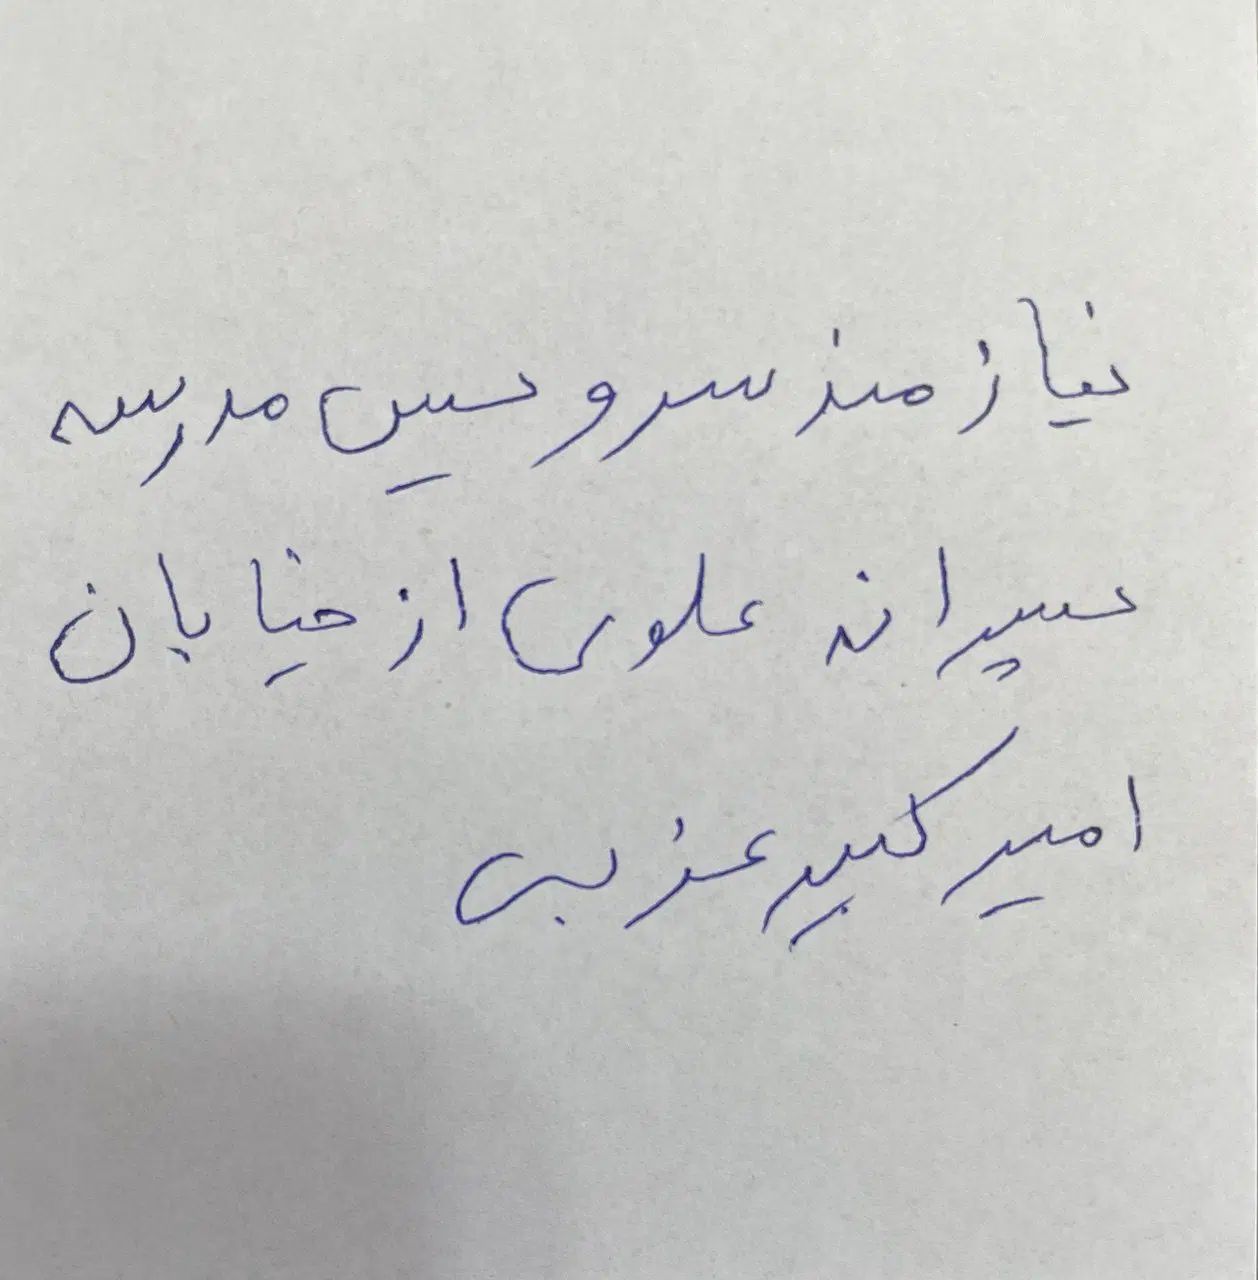 نیازمند سرویس مدرسه
پسرانه علوی از خیابان
امیرکبیر غربی